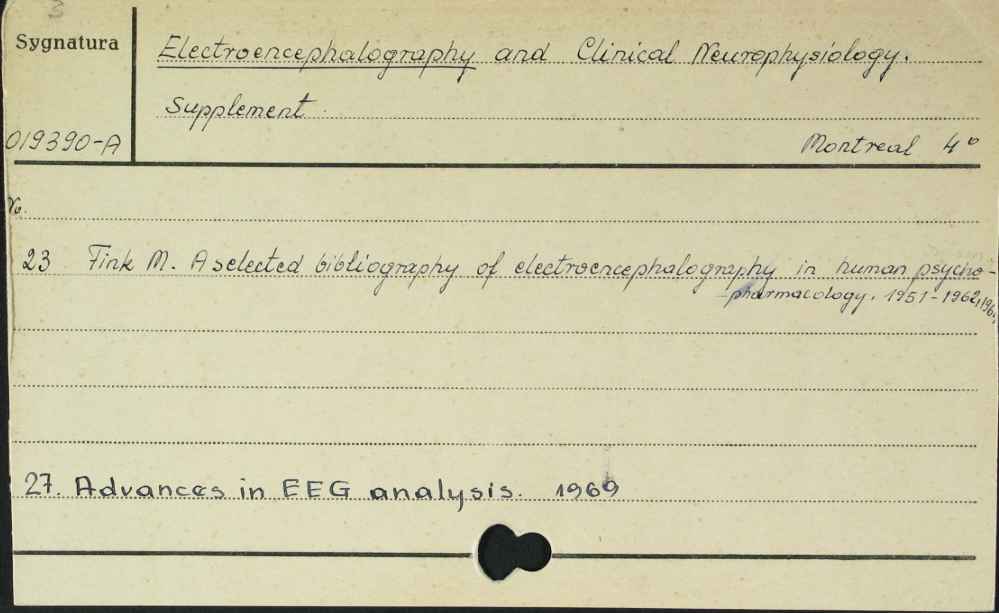 Sygnatura
Electroencephalography and Clinical Neurophysiology.
Supplement.
019390-A
Montreal 4°
No.
23 Fink M. A selected bibliography of electroencephalography in human psycho-
pharmacology. 1951-1962,
27. Advances in EEG analysis. 1969